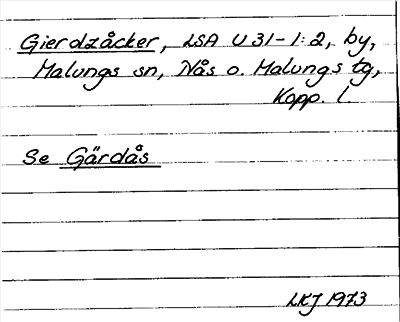 Gierdzåcker, LSA U 31-1:2, by,
Malungs sn, Nås o. Malungs tg,
Kopp. l.
Se Gärdås
LKJ 1973